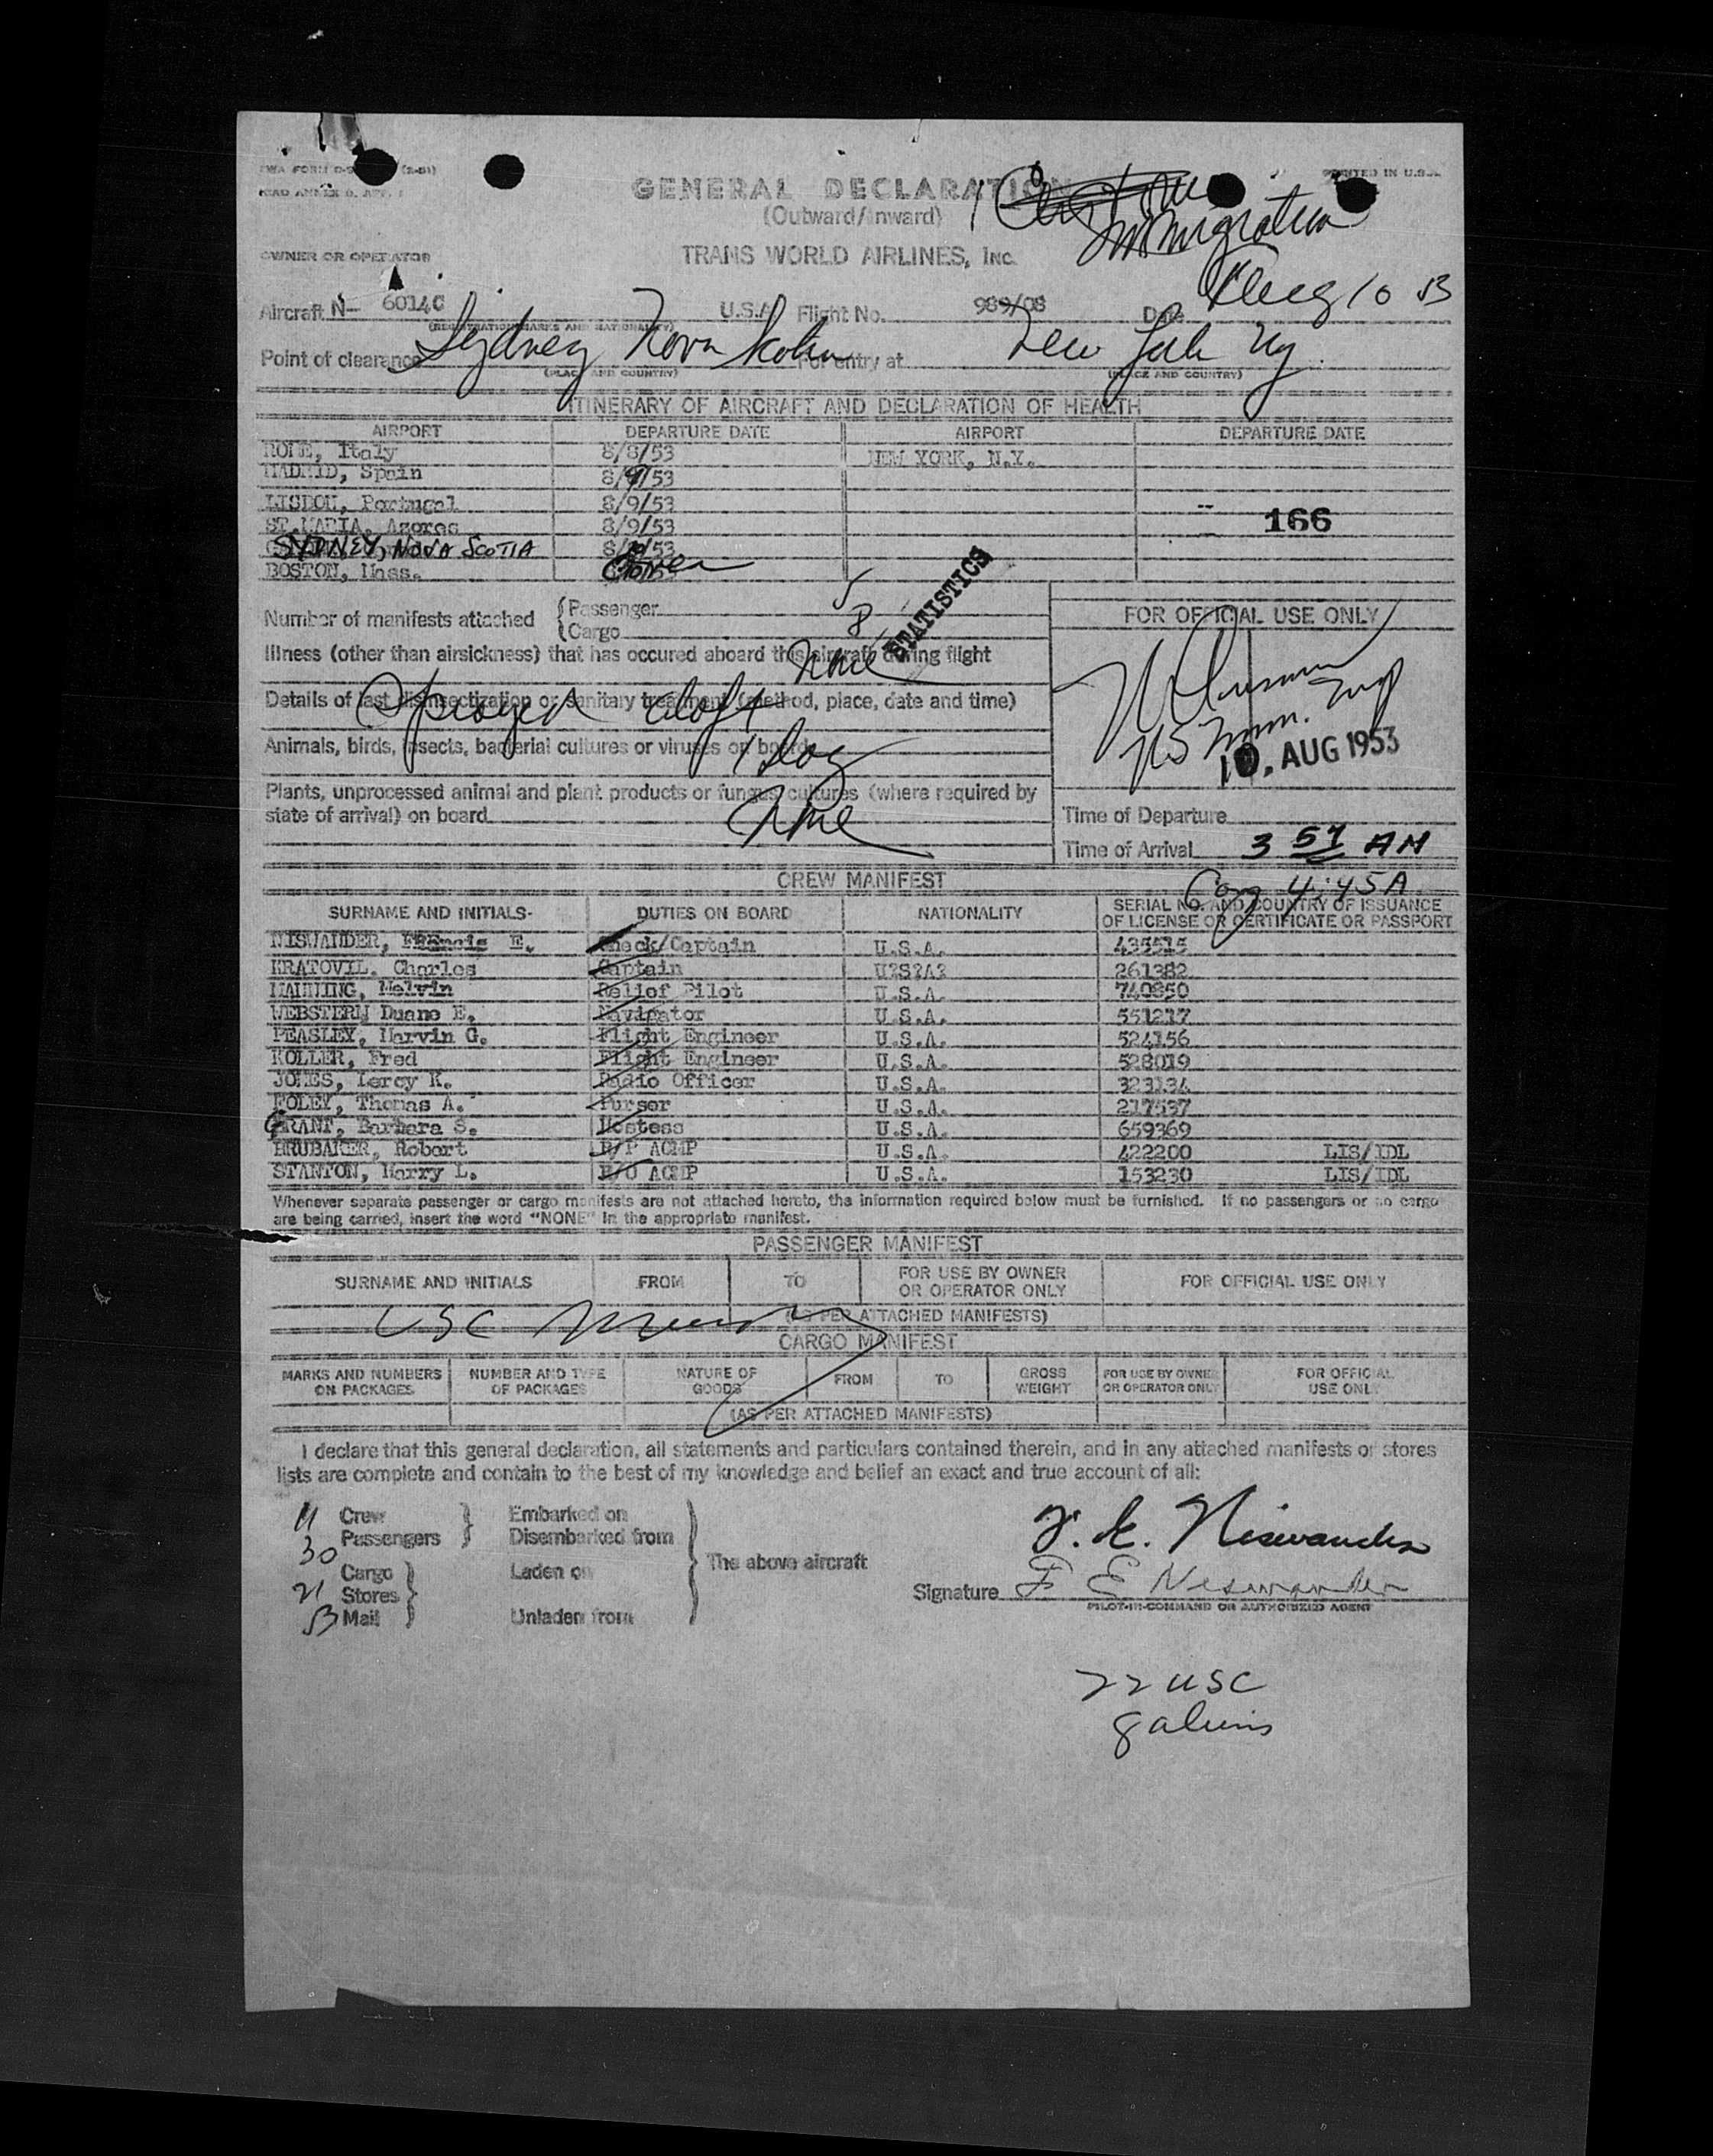 GENERAL DECLARATION
(Outward/Inward)
PRINTED IN U.S.A.
Immigration
OWNER OR OPERATOR TRANS WORLD AIRLINES, INC.
Aircraft N- 6014C U.S.A. Flight No. 989/08 Date Aug 10 53
(REGISTRATION MARKS AND NATIONALITY)
Point of clearance Sydney Nova Scotia For entry at New York NY
(PLACE AND COUNTRY) (PLACE AND COUNTRY)
ITINERARY OF AIRCRAFT AND DECLARATION OF HEALTH
AIRPORT DEPARTURE DATE AIRPORT DEPARTURE DATE
ROME, Italy 8/8/53 NEW YORK, N.Y.
MADRID, Spain 8/9/53
LISBON, Portugal 8/9/53
ST.MARIA, Azores 8/9/53 166
SYDNEY, NOVA SCOTIA 8/10/53
BOSTON, Mass.
STATISTICS
Number of manifests attached Passenger 5
Cargo 8
FOR OFFICIAL USE ONLY
Illness (other than airsickness) that has occured aboard this aircraft during flight None
Details of last disinsectization or sanitary treatment (method, place, date and time)
Sprayed aloft
Animals, birds, insects, bacterial cultures or viruses on board 1 Dog
US Imm. Insp
10. AUG 1953
Plants, unprocessed animal and plant products or fungus cultures (where required by
state of arrival) on board None
Time of Departure
Time of Arrival 3 57 AM
4:45A
CREW MANIFEST
SURNAME AND INITIALS- DUTIES ON BOARD NATIONALITY SERIAL NO. AND COUNTRY OF ISSUANCE
OF LICENSE OR CERTIFICATE OR PASSPORT
NISWANDER, Francis E. Check/Captain U.S.A. 435515
KRATOVIL, Charles Captain U?S?A? 261382
MANNING, Melvin Relief Pilot U.S.A. 740850
WEBSTERN Duane E. Navigator U.S.A. 551217
PEASLEY, Marvin G. Flight Engineer U.S.A. 524156
KOLLER, Fred Flight Engineer U.S.A. 528019
JONES, Leroy K. Radio Officer U.S.A. 323134
FOLEY, Thomas A. Purser U.S.A. 217597
GRANT, Barbara S. Hostess U.S.A. 659369
BRUBAKER, Robert R/P ACMP U.S.A. 422200 LIS/IDL
STANTON, Harry L. R/O ACMP U.S.A. 153230 LIS/IDL
Whenever separate passenger or cargo manifests are not attached hereto, the information required below must be furnished. If no passengers or no cargo
are being carried, insert the word "NONE" in the appropriate manifest.
PASSENGER MANIFEST
SURNAME AND INITIALS FROM TO FOR USE BY OWNER
OR OPERATOR ONLY FOR OFFICIAL USE ONLY
USC
(AS PER ATTACHED MANIFESTS)
CARGO MANIFEST
MARKS AND NUMBERS
ON PACKAGES NUMBER AND TYPE
OF PACKAGES NATURE OF
GOODS FROM TO GROSS
WEIGHT FOR USE BY OWNER
OR OPERATOR ONLY FOR OFFICIAL
USE ONLY
(AS PER ATTACHED MANIFESTS)
I declare that this general declaration, all statements and particulars contained therein, and in any attached manifests or stores
lists are complete and contain to the best of my knowledge and belief an exact and true account of all:
11 Crew Embarked on
30 Passengers Disembarked from
Cargo Laden on The above aircraft
21 Stores
53 Mail Unladen from
F. E. Niswander
Signature F E Niswander
PILOT-IN-COMMAND OR AUTHORIZED AGENT
22 USC
8 aliens